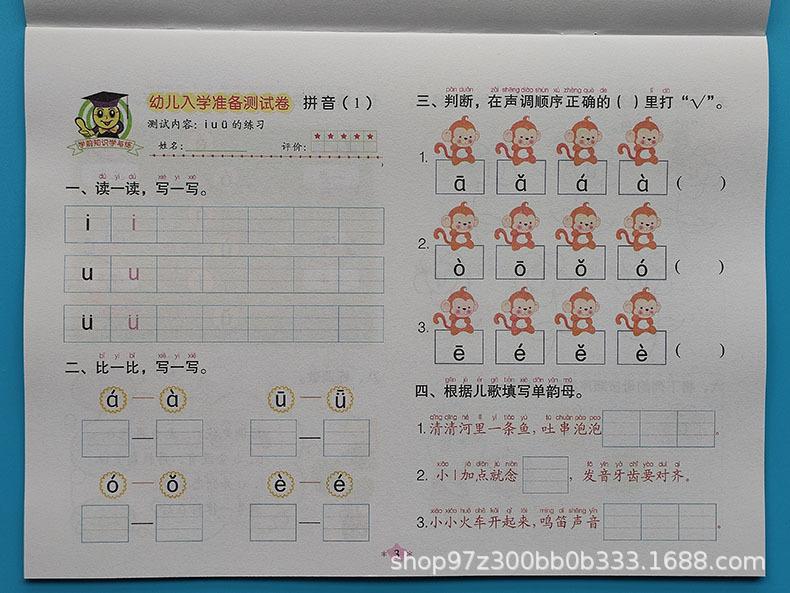 幼儿入学准备测试卷 拼音（1）
测试内容：i u ü 的练习
姓名： 评价：
学前知识学与练
dú yi dú xiě yi xiě
一、读一读，写一写。
i i
u u
ü ü
bǐ yi bǐ xiě yi xiě
二、比一比，写一写。
á à ū ǖ
ó ǒ è é
pàn duàn zài shēng diào shùn xù zhèng què de lǐ dǎ
三、判断，在声调顺序正确的（ ）里打“√”。
1. ā ǎ á à （ ）
2. ò ō ǒ ó （ ）
3. ē é ě è （ ）
gēn jù ér gē tián xiě dān yùn mǔ
四、根据儿歌填写单韵母。
qīng qīng hé lǐ yì tiáo yú tǔ chuàn pào pao
1.清清河里一条鱼，吐串泡泡 。
xiǎo jiā diǎn jiù niàn fā yīn yá chǐ yào duì qí
2. 小 i 加点就念 ，发音牙齿要对齐。
xiǎo xiǎo huǒ chē kāi qǐ lái míng dí shēng yīn
3.小小火车开起来，鸣笛声音 。
3
shop97z300bb0b333.1688.com